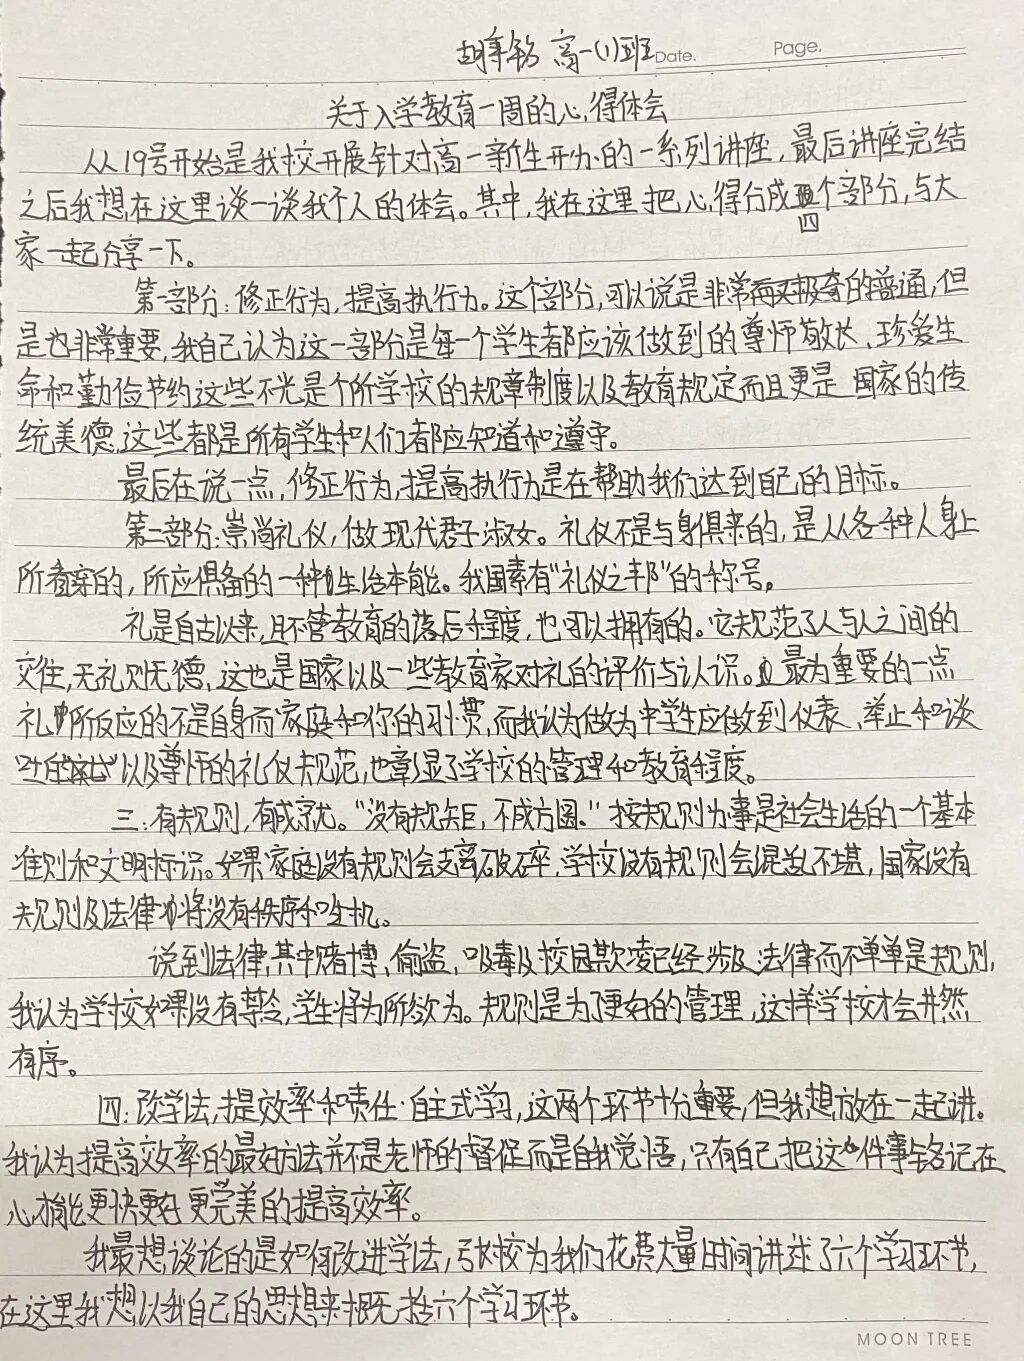 胡 铭 高一(1)班 Date. Page.
关于入学教育一周的心得体会
从19号开始是我校开展针对高一新生开办的一系列讲座，最后讲座完结
之后我想在这里谈一谈我个人的体会。其中，我在这里把心得分成四个部分，与大
家一起分享一下。
第一部分：修正行为，提高执行力。这个部分，可以说是非常的普通，但
是也非常重要，我自己认为这一部分是每一个学生都应该做到的尊师敬长、珍爱生
命和勤俭节约这些不光是个所学校的规章制度以及教育规定而且更是国家的传
统美德，这些都是所有学生和人们都应知道和遵守。
最后在说一点，修正行为，提高执行力是在帮助我们达到自己的目标。
第二部分：崇尚礼仪，做现代君子淑女。礼仪不是与身俱来的，是从各种人身上
所穿的，所应俱备的一种生活本能。我国素有“礼仪之邦”的称号。
礼是自古以来，且不管教育的落后程度，也可以拥有的。它规范了人与人之间的
交往，无礼则无德，这也是国家以及一些教育家对礼的评价与认识。最为重要的一点
礼所反应的不是自身而家庭和你的习惯，而我认为做为中学生应做到仪表、举止和谈
吐 以及尊师的礼仪规范，也彰显了学校的管理和教育程度。
三：有规则，有成就。“没有规矩，不成方圆。”按规则办事是社会生活的一个基本
准则和文明标识。如果家庭没有规则会支离破碎，学校没有规则会混乱不堪，国家没有
规则及法律将没有秩序和生机。
说到法律，其中赌博、偷盗、吸毒及校园欺凌已经涉及法律而不单单是规则，
我认为学校如果没有禁令，学生将为所欲为。规则是为了更好的管理，这样学校才会井然
有序。
四：改学法，提效率和责任·自主式学习，这两个环节十分重要，但我想放在一起讲。
我认为提高效率的最好方法并不是老师的督促而是自我觉悟，只有自己把这件事铭记在
心才能更快更好更完美的提高效率。
我最想谈论的是如何改进学法，学校为我们花费大量时间讲述了六个学习环节，
在这里我想以我自己的思想来概括六个学习环节。
MOON TREE